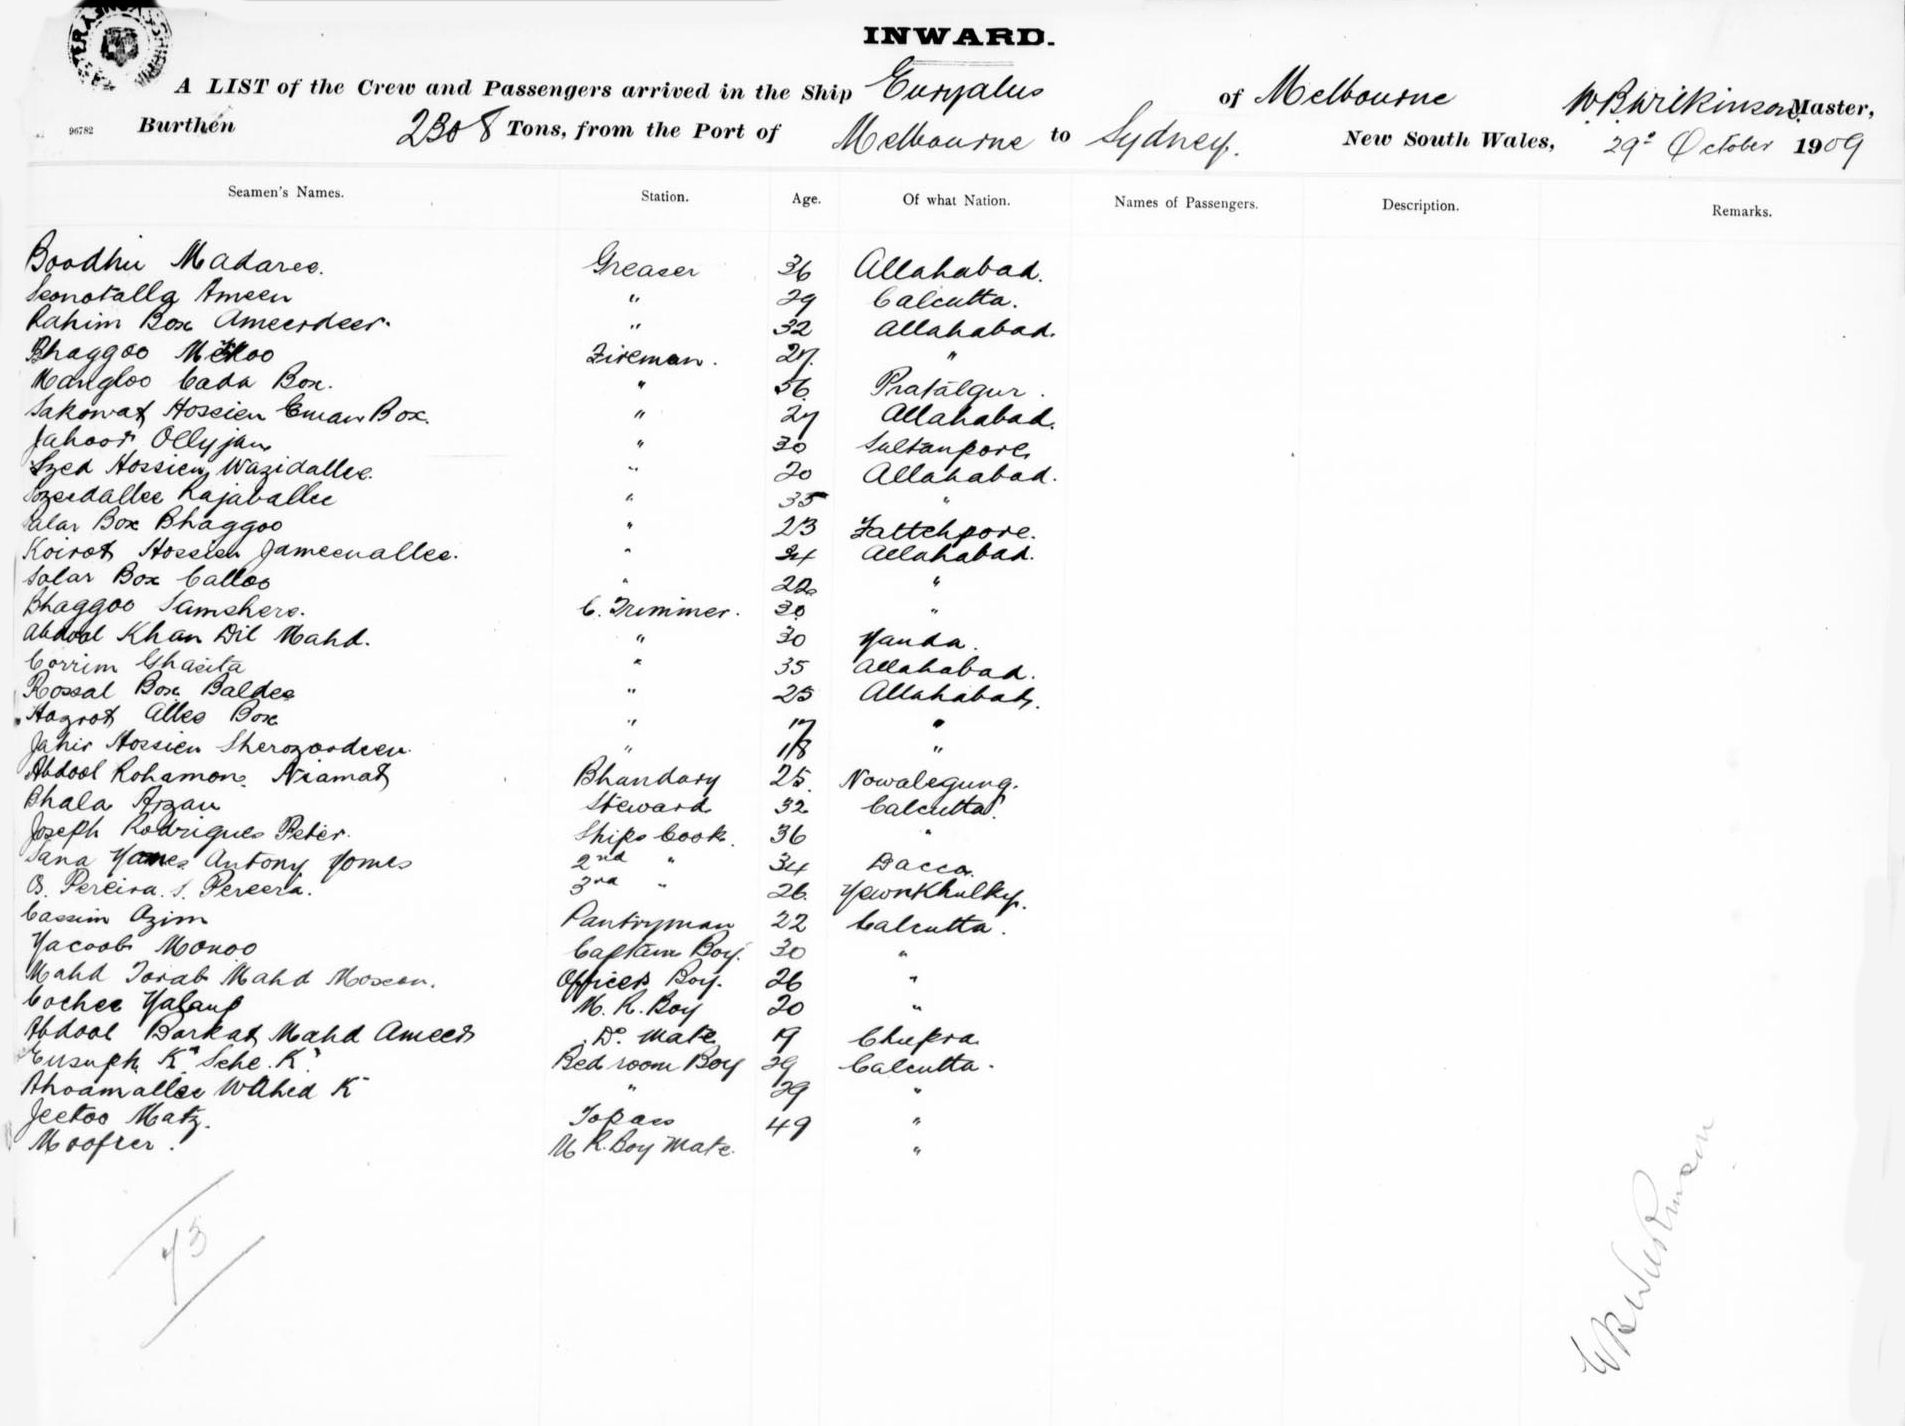 INWARD.
A LIST of the Crew and Passengers arrived in the Ship Euryalus of Melbourne W.B. Wilkinson Master,
96782 Burthen 2308 Tons, from the Port of Melbourne to Sydney. New South Wales, 29th October 1909
Seamen's Names. Station. Age. Of what Nation. Names of Passengers. Description. Remarks.
Boodhu Madaree. Greaser 36 Allahabad.
Ameen " 29 Calcutta.
Rahim Box Ameerdeer. " 32 Allahabad.
Bhaggoo Fireman. 27. "
Mangloo Cada Box. " 36 Pratalgur.
Sakowat Hossien Eman Box. " 27 Allahabad.
Jahoor Ollyjan " 30 Sultanpore
Syed Hossien Wazidallee. " 20 Allahabad.
Rajaballee " 35 "
Salar Box Bhaggoo " 23 Fattehpore.
Koirat Hossien Jameenallee. " 24 Allahabad.
Salar Box Calloo " 22 "
Bhaggoo Samshere. C. Trimmer. 30 "
Abdool Khan Dil Mahd. " 30
Corrim Ghasita " 35 Allahabad.
Rossal Box Baldee " 25 Allahabad.
Hazrat Allee Box " 17 "
Jahir Hossien " 18 "
Abdool Rohamon Niamat Bhandary 25. Nowalegung.
Bhala Steward 32 Calcutta.
Joseph Rodrigues Peter. Ships Cook. 36 "
Antony Gomes 2nd " 34 Dacca.
Pereira. S. Pereera. 3rd " 26
Cassim Azim Pantryman 22 Calcutta.
Yacoob Monoo Captain Boy. 30 "
Mahd Torab Mahd Officers Boy. 26 "
Cochee M. R. Boy 20 "
Abdool Barkat Mahd Ameer Do. Mate 19 Chupra
Eusuph K" Sehe K". Bed room Boy 29 Calcutta.
Wahed K" " 29 "
Jeetoo Matz. Topass 49 "
M R. Boy Mate. "
73
WB Wilkinson